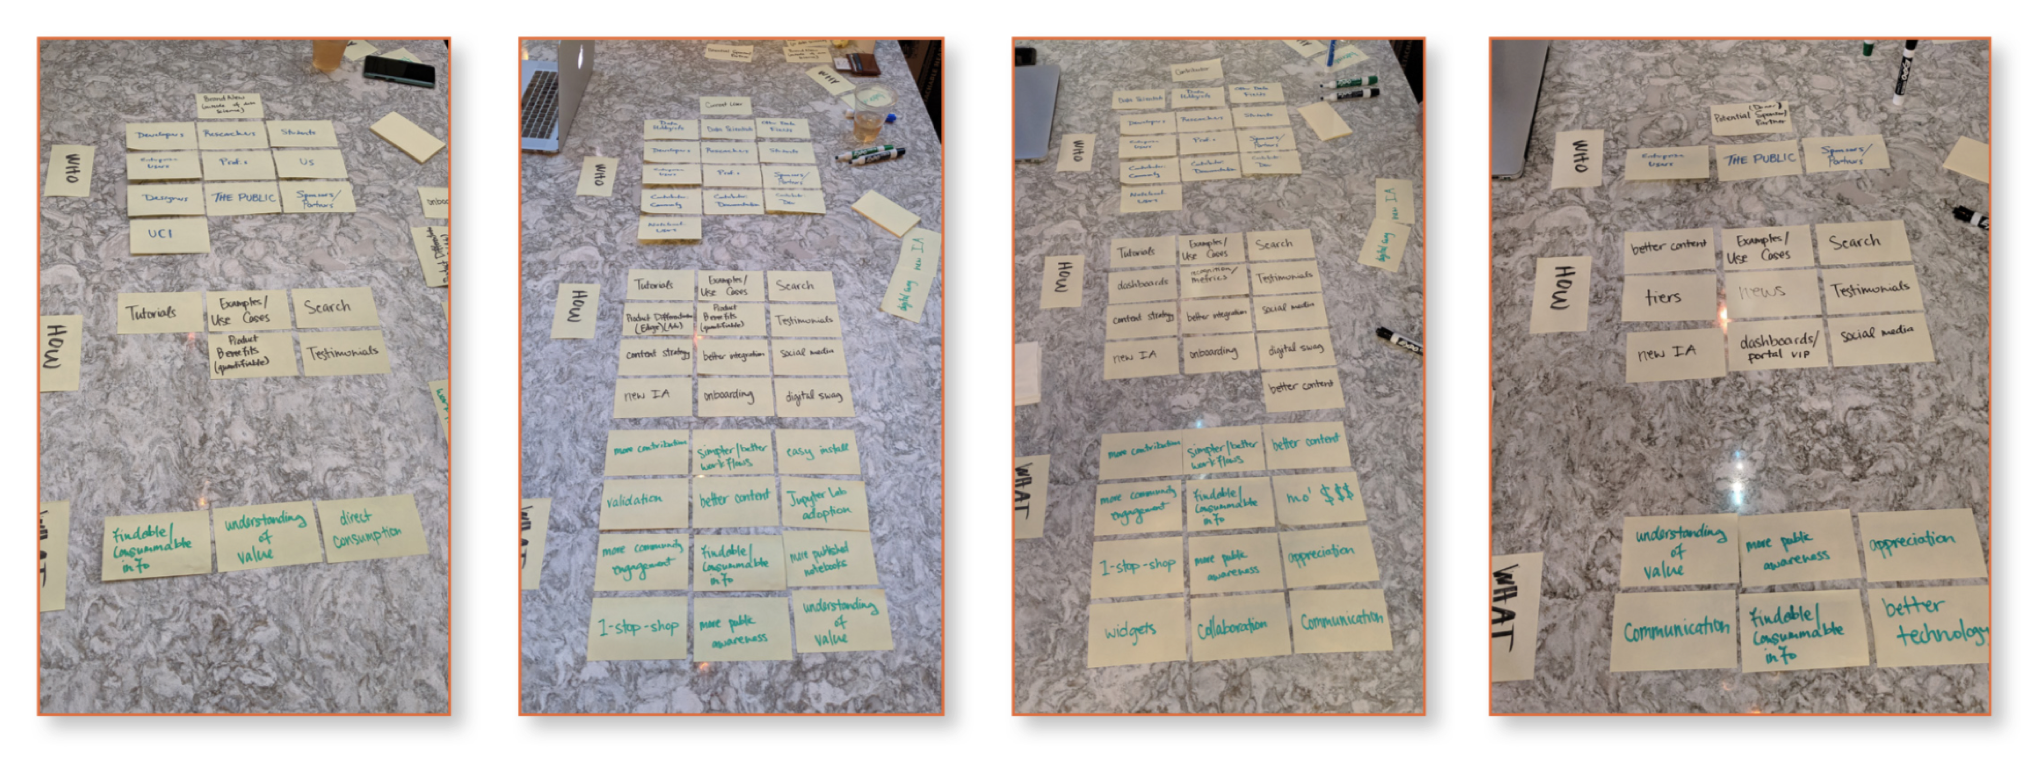 Brand New
Developers
Researchers
Students
Enterprise
Users
Profs
US
Designers
THE PUBLIC
Sponsors/
Partners
UCI
WHO
Tutorials
Examples/
Use Cases
Search
Product
Benefits
(quantifiable)
Testimonials
HOW
findable/
consummable
info
understanding
of
value
direct
consumption
WHAT
WHY
Current User
Data Scientists
Other Data
Developers
Researchers
Students
Enterprise
Users
Profs
Sponsors/
Partners
Contributor
Community
Contributor
Documentation
Contributor
Dev
Notebook
Users
WHO
new IA
digital swag
Tutorials
Examples/
Use Cases
Search
Product Differentiation
Product
Benefits
(quantifiable)
Testimonials
content strategy
better integration
social media
new IA
onboarding
digital swag
HOW
more contribution
simpler/better
workflows
easy install
validation
better content
Jupyter Lab
adoption
more community
engagement
findable/
consummable
info
more published
notebooks
1-stop-shop
more public
awareness
understanding
of
value
WHAT
Contributor
Data Scientists
Other Data
Developers
Researchers
Students
Enterprise
Users
Profs
Sponsors/
Partners
Contributor
Community
Contributor
Documentation
Contributor
Dev
Notebook
Users
WHO
new IA
digital swag
Tutorials
Examples/
Use Cases
Search
dashboards
recognition/
metrics
Testimonials
content strategy
better integration
social media
new IA
onboarding
digital swag
better content
HOW
more contribution
simpler/better
workflows
better content
more community
engagement
findable/
consummable
info
mo' $$$
1-stop-shop
more public
awareness
appreciation
widgets
collaboration
Communication
WHAT
(Donor)
Potential Sponsor/
Partner
WHO
Enterprise
Users
THE PUBLIC
Sponsors/
Partners
better content
Examples/
Use Cases
Search
tiers
news
Testimonials
new IA
dashboards/
portal VIP
social media
HOW
understanding
of
value
more public
awareness
appreciation
Communication
findable/
consummable
info
better
technology
WHAT